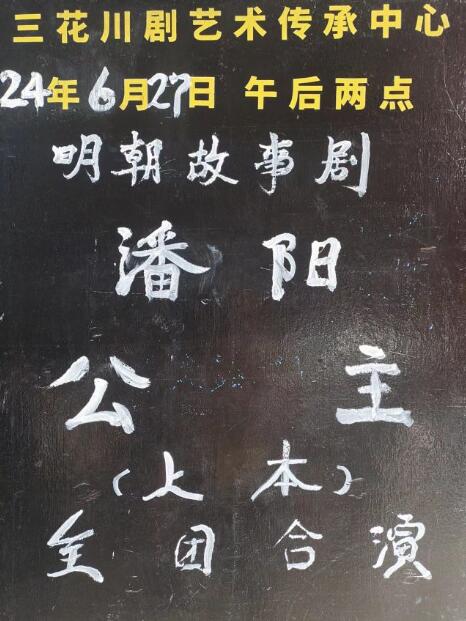 三花川剧艺术传承中心
24年6月27日 午后两点
明朝故事剧
潘阳
公主
（上本）
全团合演